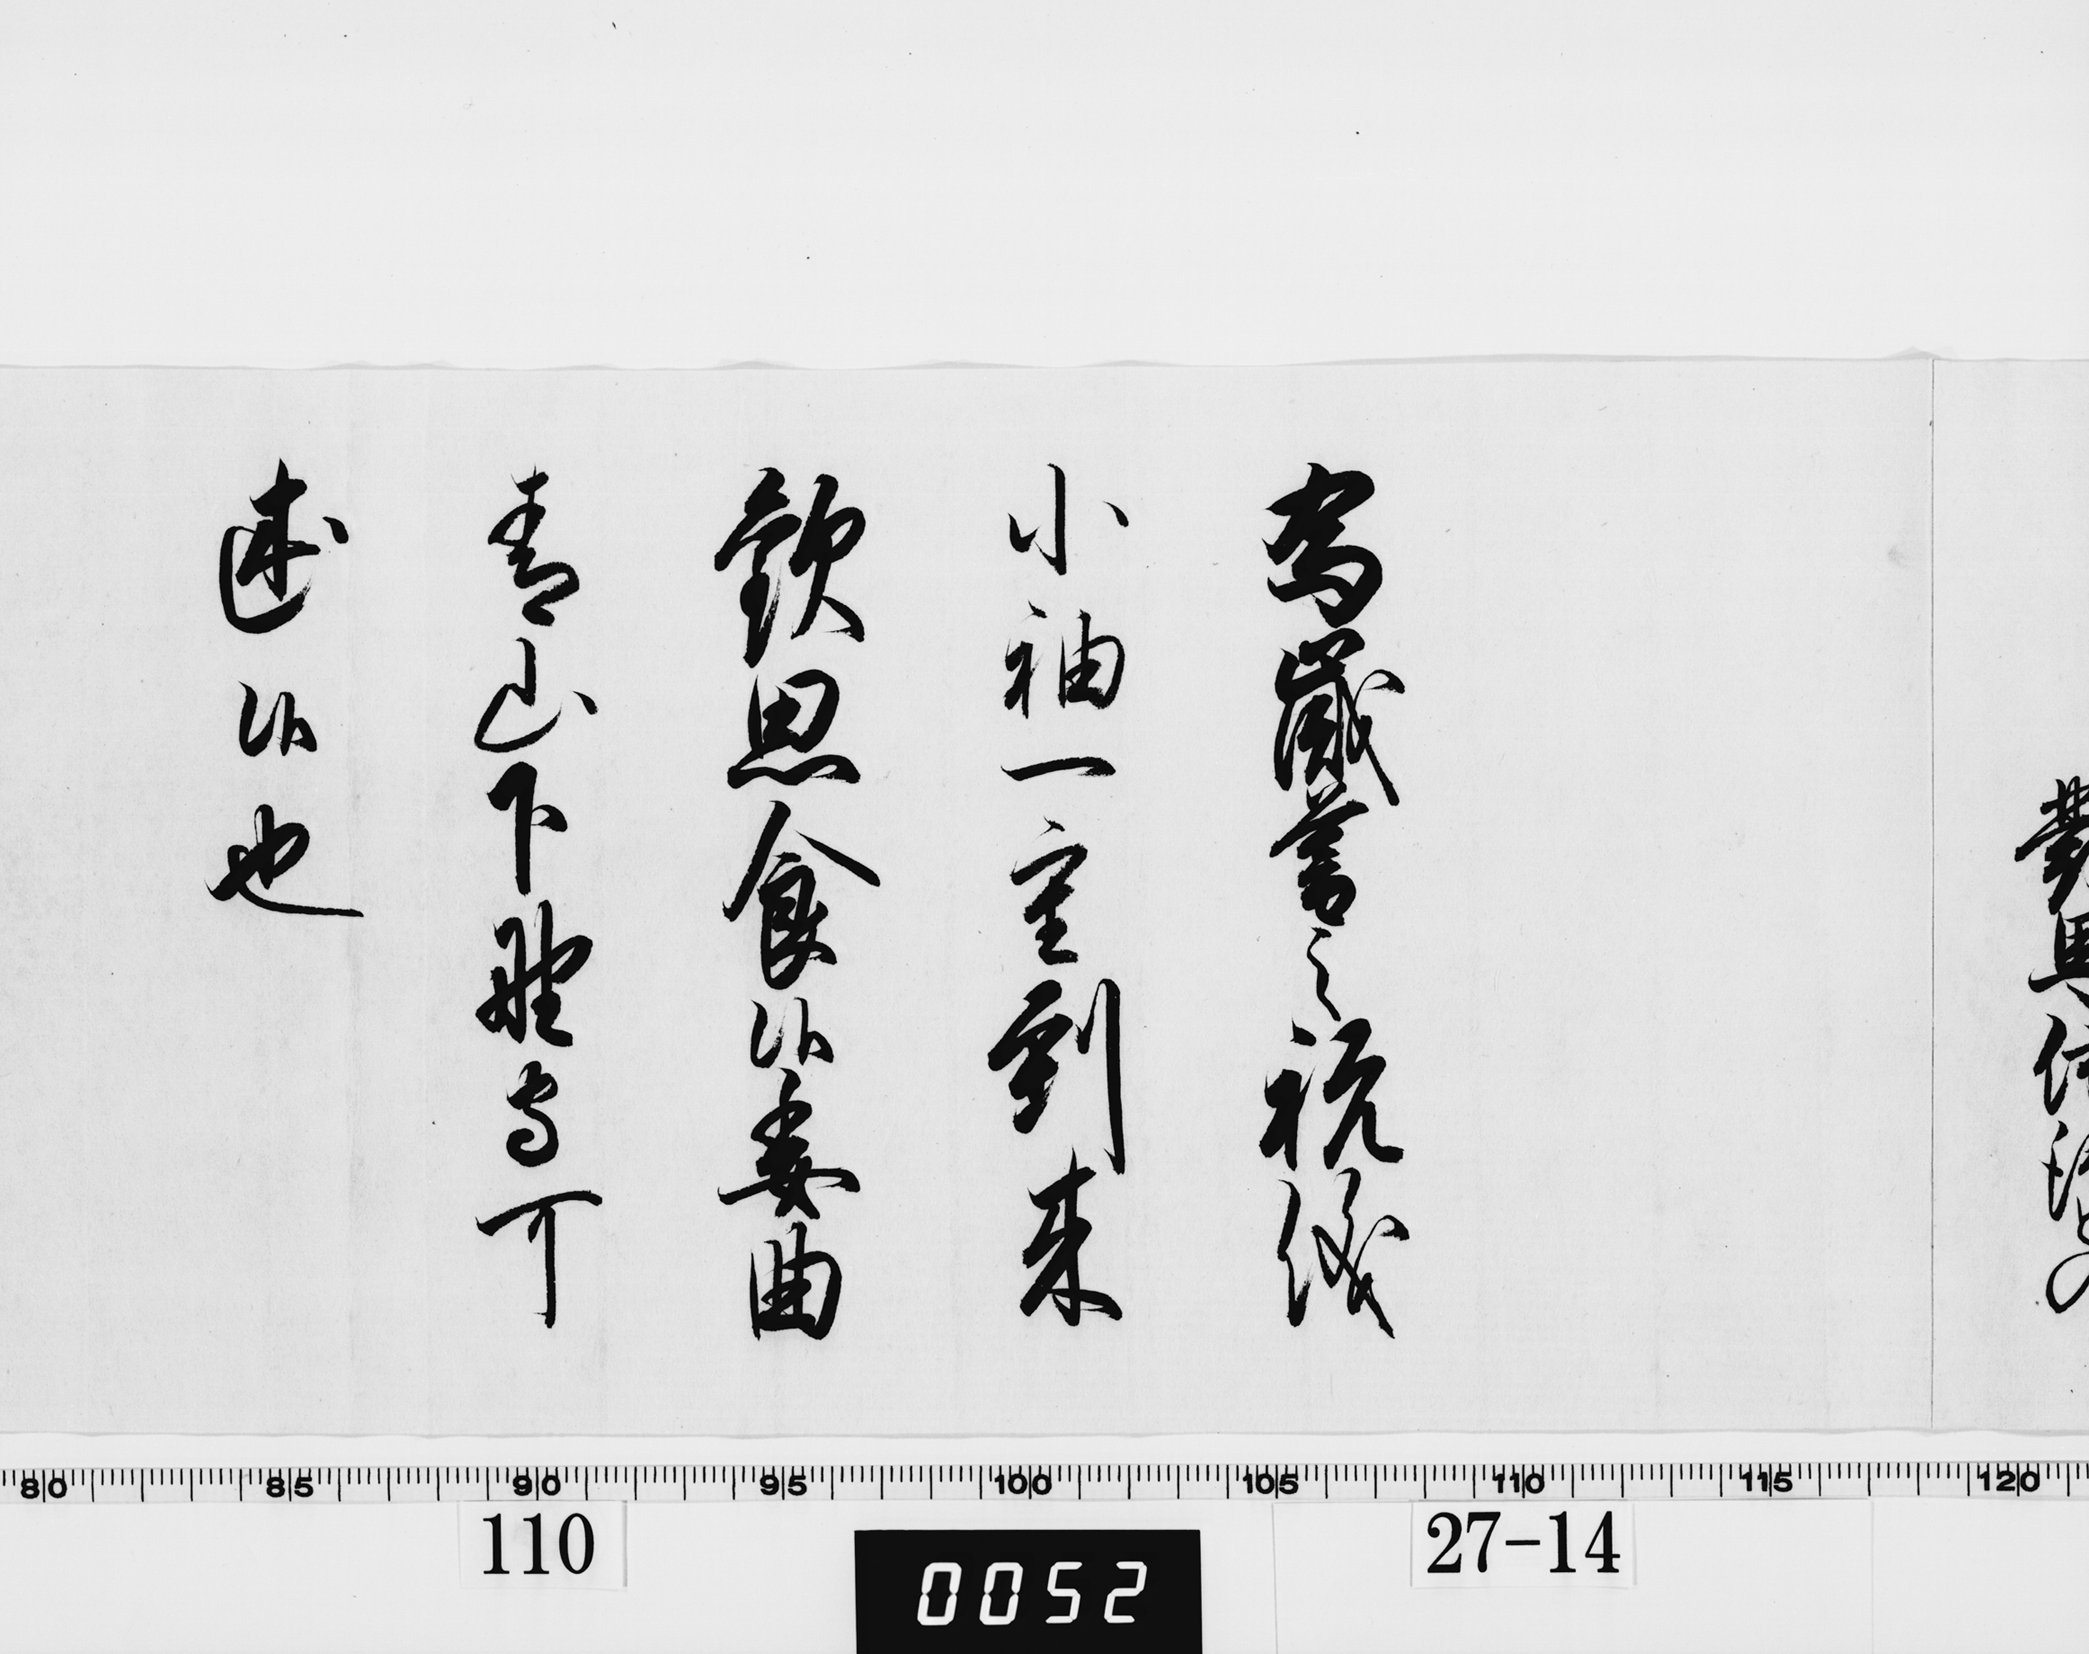 為歳暮之祝儀
小袖一重到来
歓思食候委曲
青山下野守可
述候也
80 85 90 95 100 105 110 115 120
110
0052
27-14